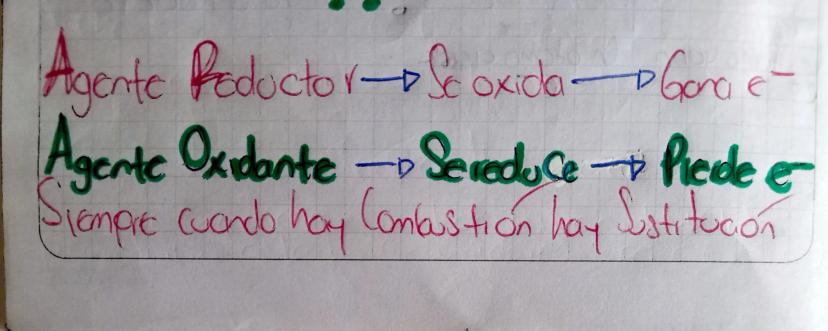 Agente Reductor → Se oxida → Gana e⁻
Agente Oxidante → Se reduce → Piede e⁻
Siempre cuando hay Combustión hay Sustitución